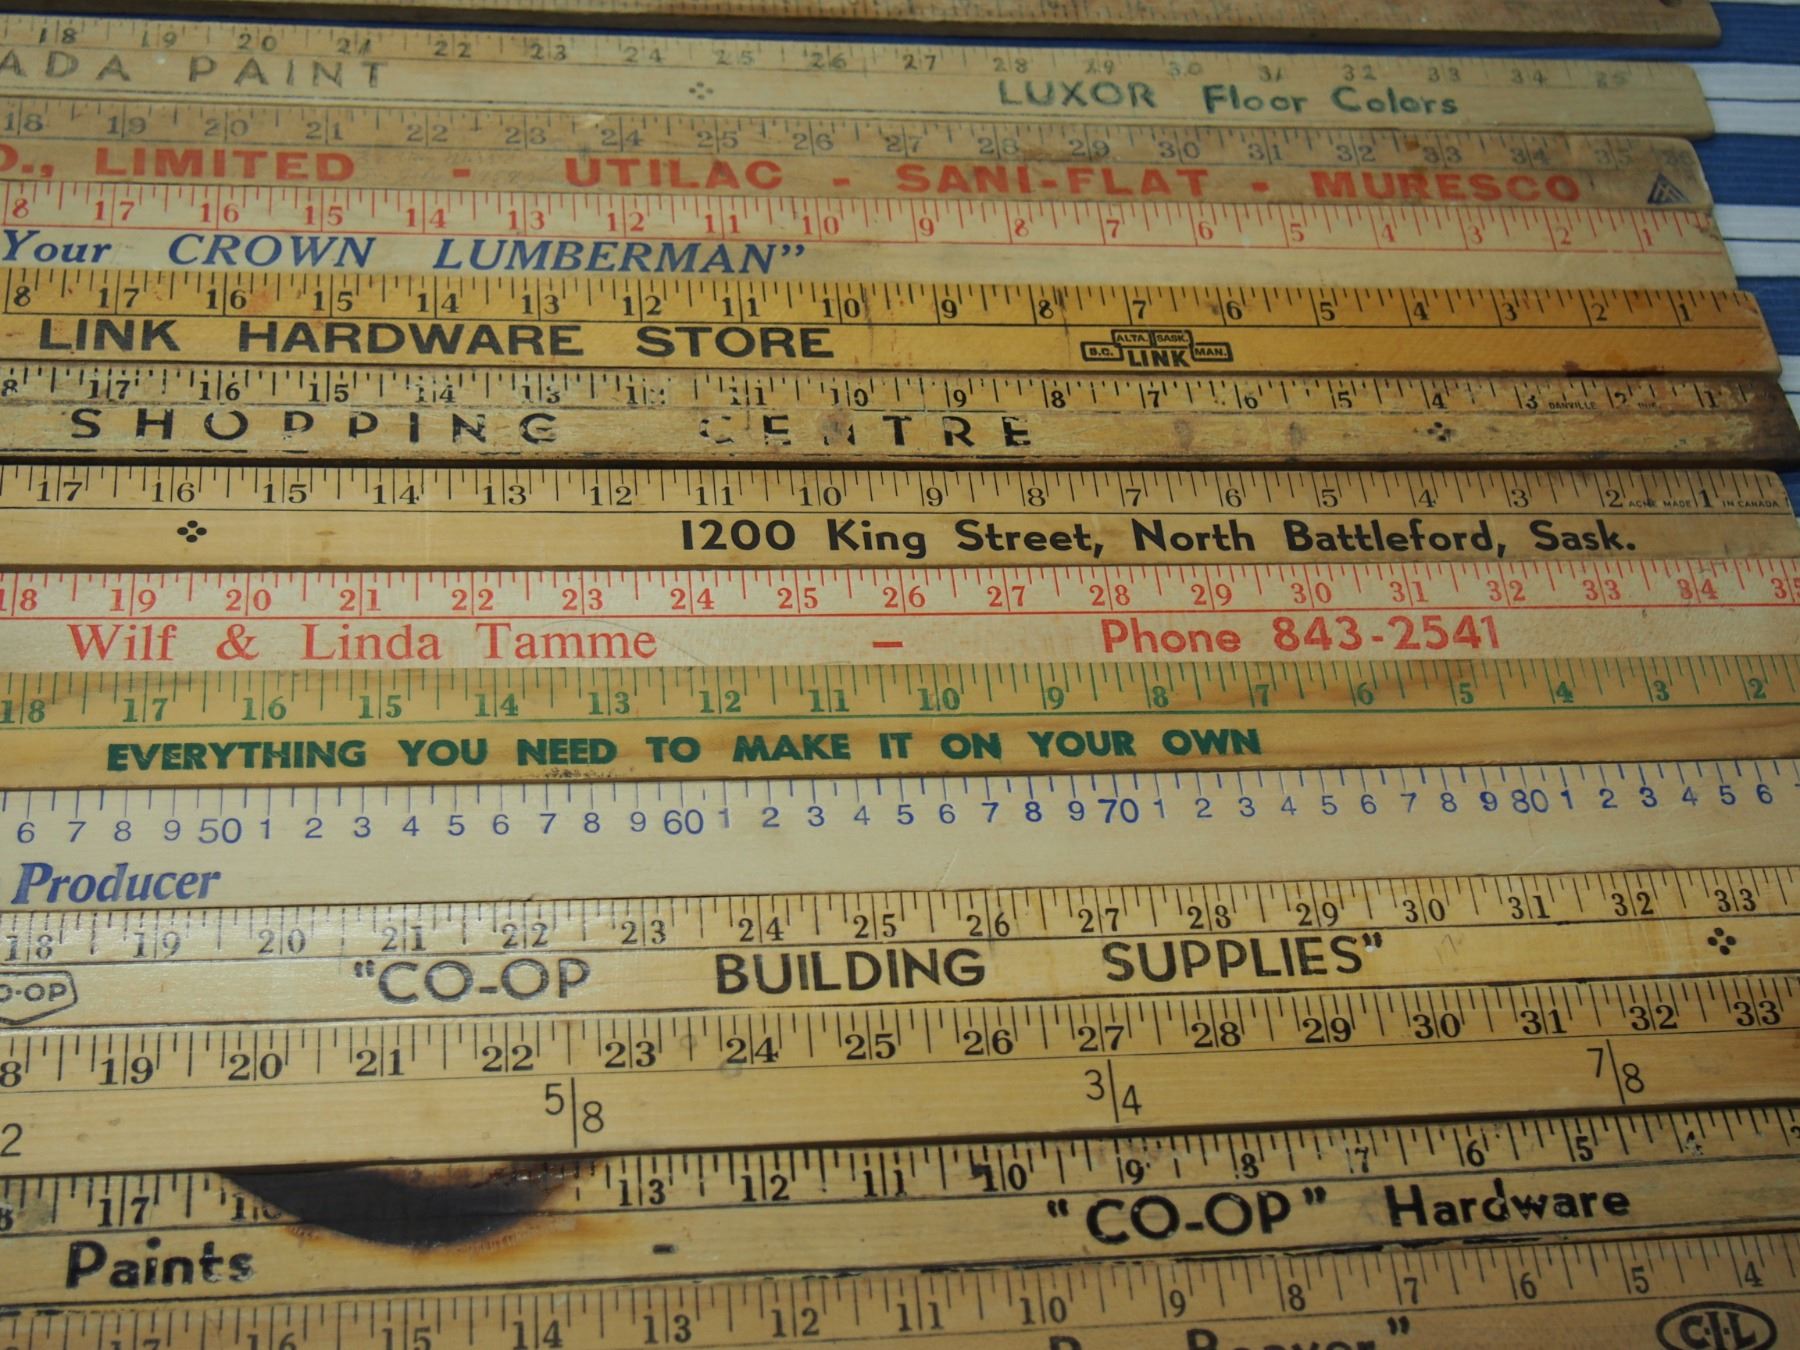 18 19 20 21 22 23 24 25 26 27 28 29 30 31 32 33 34 35
ADA PAINT LUXOR Floor Colors
18 19 20 21 22 23 24 25 26 27 28 29 30 31 32 33 34 35 36
O., LIMITED - UTILAC - SANI-FLAT - MURESCO
8 17 16 15 14 13 12 11 10 9 8 7 6 5 4 3 2 1
Your CROWN LUMBERMAN"
8 17 16 15 14 13 12 11 10 9 8 7 6 5 4 3 2 1
LINK HARDWARE STORE B.C. ALTA. SASK. MAN. LINK
8 17 16 15 14 13 11 10 9 8 7 6 5 4 3 DANVILLE 2 1
SHOPPING CENTRE
17 16 15 14 13 12 11 10 9 8 7 6 5 4 3 2 ACME MADE 1 IN CANADA
1200 King Street, North Battleford, Sask.
18 19 20 21 22 23 24 25 26 27 28 29 30 31 32 33 34 35
Wilf & Linda Tamme - Phone 843-2541
18 17 16 15 14 13 12 11 10 9 8 7 6 5 4 3 2
EVERYTHING YOU NEED TO MAKE IT ON YOUR OWN
6 7 8 9 50 1 2 3 4 5 6 7 8 9 60 1 2 3 4 5 6 7 8 9 70 1 2 3 4 5 6 7 8 9 80 1 2 3 4 5 6
Producer
18 19 20 21 22 23 24 25 26 27 28 29 30 31 32 33
O-OP "CO-OP BUILDING SUPPLIES"
8 19 20 21 22 23 24 25 26 27 28 29 30 31 32 33
2 5/8 3/4 7/8
8 17 13 12 11 10 9 8 7 6 5 4
Paints - "CO-OP" Hardware
17 16 15 14 13 12 11 10 9 8 7 6 5 4
Beaver" C-I-L